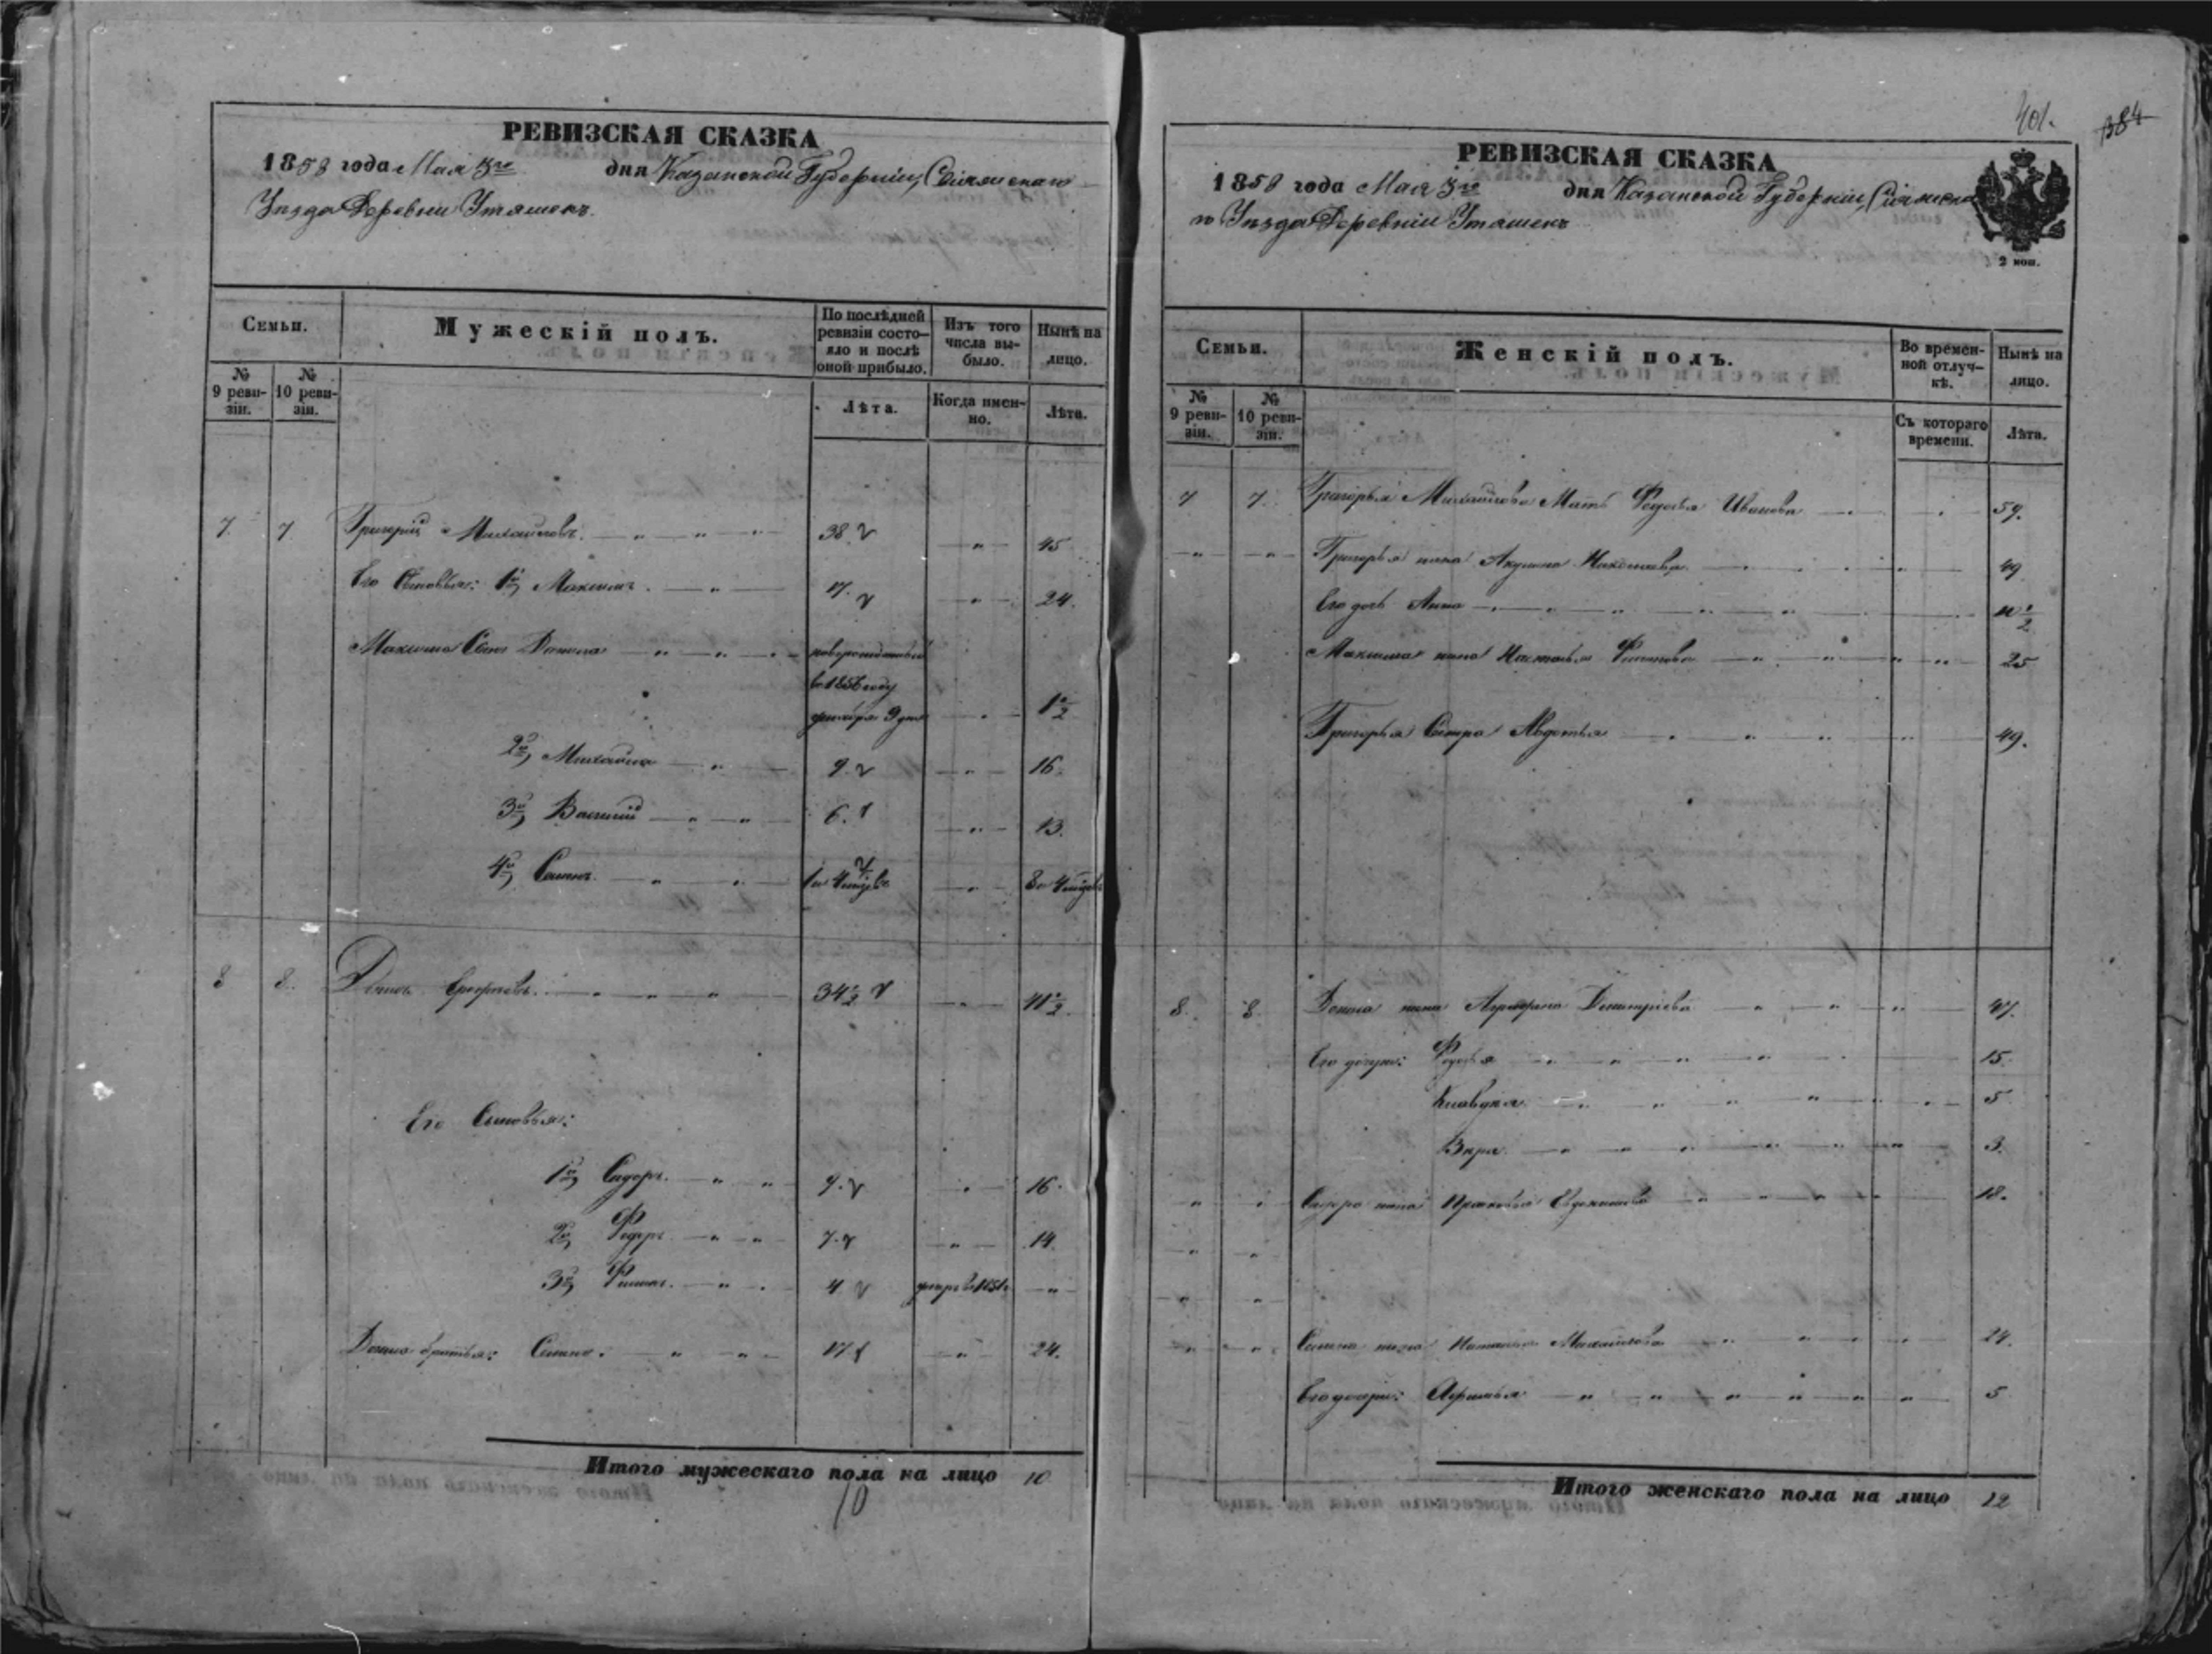 РЕВИЗСКАЯ СКАЗКА
1858 года Мая 3го дня Казанской Губерніи, Свіяжскаго
Уѣзда Деревни Утяшекъ.
Семьи.
Мужескій полъ.
По послѣдней ревизіи состояло и послѣ оной прибыло.
Изъ того числа выбыло.
Нынѣ на лицо.
№ 9 ревизіи.
№ 10 ревизіи.
Лѣта.
Когда именно.
Лѣта.
7. 7 Григорій Михайловъ. 38. 45
Его Сыновья: 1й Максимъ. 17. 24.
Максима Сынъ Данила новорожденный
въ 1856 году
9 дня 1 1/2
2й Михайла 9. 16.
3й Василій 6. 13.
4й Семенъ. 1 и 4 8 и 4
8 8. 34 1/2 41 1/2.
Его Сыновья:
1й Сидоръ. 9. 16.
2й Федоръ. 7. 14.
3й 4 —
братья: Семенъ. 17 24.
Итого мужескаго пола на лицо 10
10
401.
384
РЕВИЗСКАЯ СКАЗКА
1858 года Мая 3го дня Казанской Губерніи, Свіяжска
го Уѣзда Деревніи Утяшекъ
2 коп.
Семьи.
Женскій полъ.
Во временной отлучкѣ.
Нынѣ на лицо.
№ 9 ревизіи.
№ 10 ревизіи.
Съ котораго времени.
Лѣта.
7 7. Григорья Михайлова Мать Федосья Иванова 59.
Григорья жена Акулина 49
Его дочь Анна 1/2
Максима жена Настасья 25
Григорья Сестра Авдотья 49.
8. 8. жена Аграфена Димитріева 47.
Его дочери: Федосья 15.
Клавдія 5
Вѣра 3.
Сидора жена Прасковья Евдокимова 18.
Семена жена Наталья Михайлова 24.
Его дочери: Афимья 5
Итого женскаго пола на лицо 12